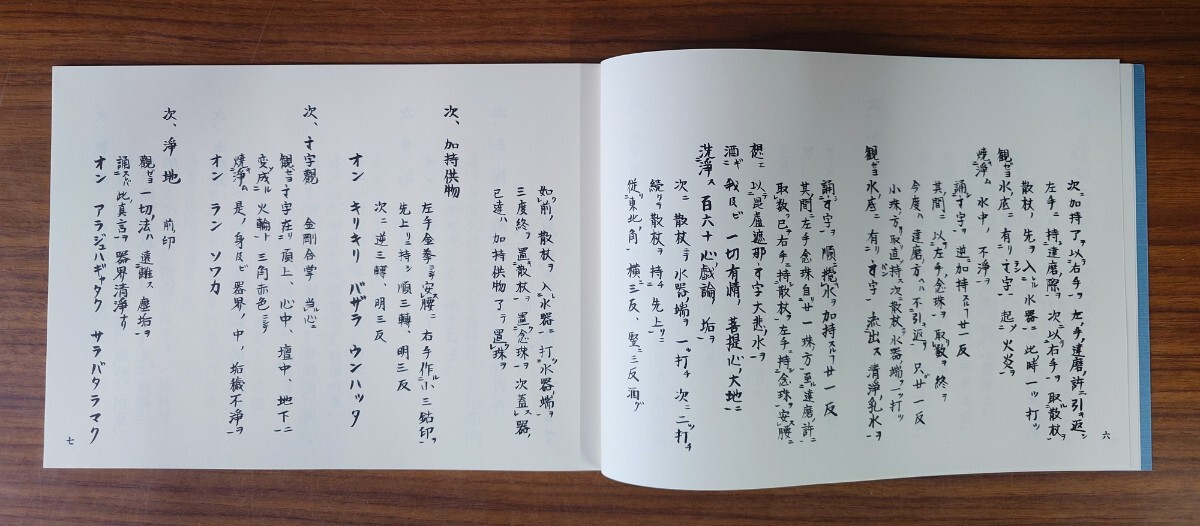 次ニ加持了以右手ヲ左ノ手ノ達磨ノ許ニ引キ返シ
左手ニ持達磨ノ際ヲ次以右手ヲ取散杖ヲ
散杖ノ先ヲ入ル水器ニ此時一ッ打ッ
観ゼヨ水底ニ有リ字起ッ火炎ヲ
焼浄ム水中ノ不浄ヲ
誦字ヲ逆加持スルヿ廿一反
其ノ間ニ以左手ノ念珠ヲ取数ヲ終テ
今度ハ達磨ノ方ヘハ不引返只廿一反
小珠ノ方ヲ取直持次散杖ヲ水器端ヲ一ッ打ッ
観ゼヨ水底ニ有リ字流出ス清浄ノ乳水ヲ
誦字ヲ順ニ攪水ヲ加持スルヿ廿一反
其ノ間ニ左手念珠自廿一珠方至達磨ノ許ニ
取数ヲ已右手ニ持散杖ヲ左手ニ持念珠ヲ安腰ニ
想エ以毘盧遮那字大悲ノ水ヲ
洒ギ我及ビ一切有情ノ菩提心ノ大地ニ
洗浄ス百六十心戯論ノ垢ヲ
次ニ散杖ニテ水器ノ端ヲ一ッ打チ次ニ二ッ打チ
続テ散杖ヲ持チ先上リニ
従東北ノ角横三反、竪三反洒グ
六
如前ノ散杖ヲ入水器ニ打水器端ヲ
三度終ヲ置散杖ヲ置念珠ヲ次蓋ス器ノ
已達ハ加持供物了テ置珠ヲ
次、加持供物
左手金拳ニヨ安腰ニ右手作ル小三鈷印ヲ
先上リニ持シ順三轉、明三反
次ニ逆三轉、明三反
オン キリキリ バザラ ウンハッタ
次、字觀 金剛合掌 当心ニ
観ゼヨ字在リ頂上、心中、壇中、地下ニ
変成ル火輪ト三角赤色ニシテ
焼浄ム是ノ身及ビ器界ノ中ノ垢穢不浄ヲ
オン ラン ソワカ
次、浄地 前印
觀ゼヨ一切ノ法ハ遠離ス塵垢ヲ
誦ニスハ此真言ヲ器界清浄ナリ
オン アラジュハギャタク サラバタラマク
七